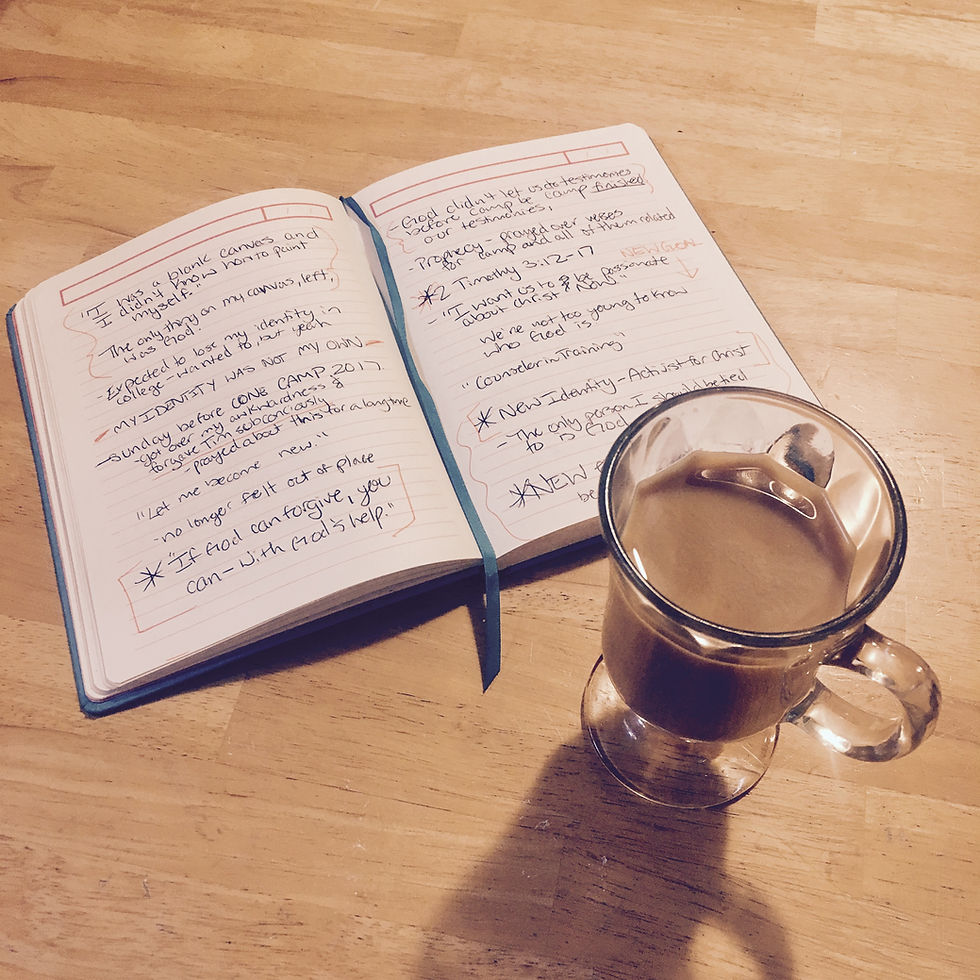 "I was a blank canvas and
I didn't know how to paint
myself."
The only thing on my canvas, left,
was God.
- Expected to lose my identity in
college - wanted to but yeah
- MY IDENTITY WAS NOT MY OWN -
- Sunday before CONE CAMP 2017
- got over my awkwardness &
forgave Tim subconciously
- prayed about this for a long time
"Let me become new."
- no longer felt out of place
* "If God can forgive, you
can - with God's help."
- God didn't let us do testimonies
before camp bc camp finished
our testimonies.
- Prophecy - prayed over verses
for camp and all of them related
NEW GOAL
* 2 Timothy 3:12-17
- "I want us to be passionate
about Christ Now"
We're not too young to know
who God is"
"Counselor in Training"
* New Identity - Activist for Christ
- The only person I should be tied
to is God
* NEW
be